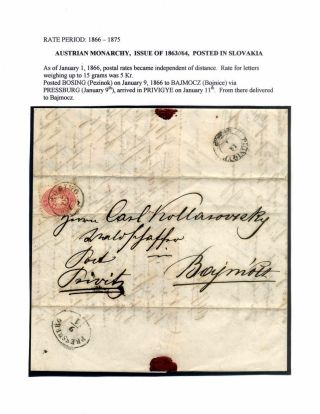 RATE PERIOD: 1866 – 1875
AUSTRIAN MONARCHY, ISSUE OF 1863/64, POSTED IN SLOVAKIA
As of January 1, 1866, postal rates became independent of distance. Rate for letters
weighing up to 15 grams was 5 Kr.
Posted BOSING (Pezinok) on January 9, 1866 to BAJMOCZ (Bojnice) via
PRESSBURG (January 9th), arrived in PRIVIGYE on January 11th. From there delivered
to Bajmocz.
Herrn Carl Kollarovsky
Waldschaffer
Post
Privitz
Bajmócz
PRESSBURG
9
1